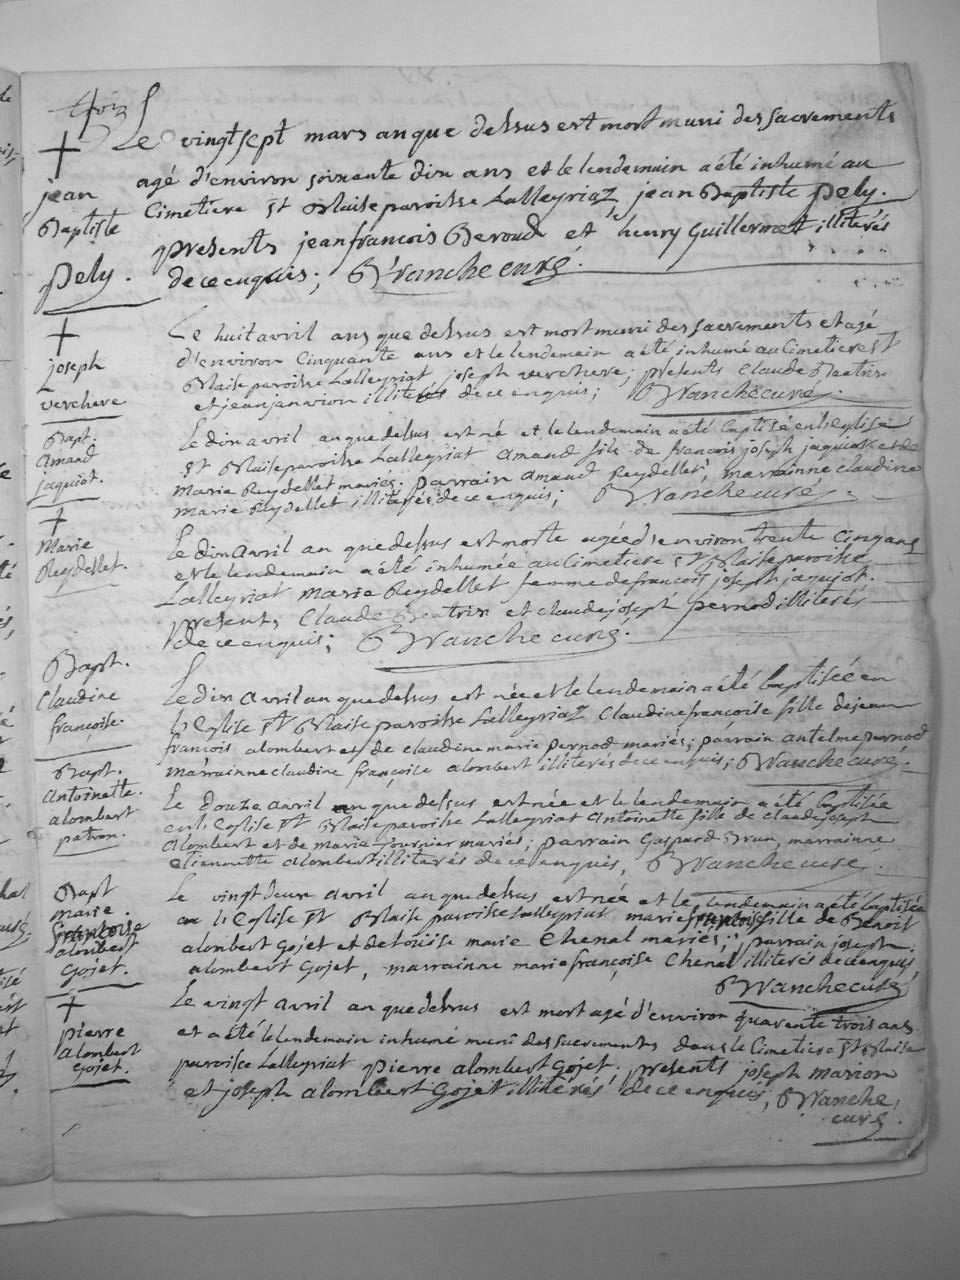 trois
Le vingt sept mars an que dessus est mort muni des sacrements
jean
Baptiste
pely.
agé d'environ soixente dix ans et le lendemain a été inhumé au
Cimetiere St Blaise paroisse Lalleyriaz jean Baptiste pely.
presents jean francois Beroud et henry Guillermet illiterés
de ce enquis; Branche curé.
joseph
verchere
Le huit avril an que dessus est mort muni des sacrements et agé
d'environ Cinquante ans et le lendemain a été inhumé au Cimetiere St
Blaise paroisse Lalleyriat joseph verchere; presents Claude Beatrix
et jean janvion illiterés de ce enquis; Branche curé.
Bapt.
Amand
jaquiot.
Le dix avril an que dessus est né et le lendemain a été baptisé en l'eglise
St Blaise paroisse Lalleyriat Amand fils de francois joseph jaquiot et de
Marie Reydellet mariés. parrain Amand Reydellet, marrainne claudine
Marie Reydellet illiterés de ce enquis; Branche curé.
Marie
Reydellet.
Le dix Avril an que dessus est morte agée d'environ trente Cinq ans
et le lendemain a été inhumée au Cimetiere St Blaise paroisse
Lalleyriat Marie Reydellet femme de francois joseph jaquiot.
presents Claude Beatrix et claude joseph pernod illiterés
de ce enquis; Branche curé.
Bapt.
Claudine
françoise.
Le dix Avril an que dessus est née et le lendemain a été baptisée en
l'Eglise St Blaise paroisse Lalleyriaz Claudine françoise fille de jean
francois alombert et de claudine marie pernod mariés; parrain antelme pernod
marrainne claudine françoise alombert illiterés de ce enquis; Branche curé.
Bapt.
Antoinette.
alombert
patron.
Le douze avril an que dessus est née et le lendemain a été baptisée
en l'Eglise St Blaise paroisse Lalleyriat Antoinette fille de claude joseph
Alombert et de marie fournier mariés; parrain Gaspard Brun, marrainne
etiennette alombert illiterés de ce enquis, Branche curé.
Bapt
marie.
françoise
alombert
Gojet.
Le vingt deux avril an que dessus est née et le lendemain a été baptisée
en l'Eglise St Blaise paroisse Lalleyriat marie françoise fille de Benoit
alombert Gojet et de louise marie Chenal mariés; parrain joseph
alombert Gojet, marrainne marie françoise Chenal illiterés de ce enquis,
Branche curé
pierre
alombert
Gojet.
Le vingt avril an que dessus est mort agé d'environ quarente trois ans
et a été le lendemain inhumé muni des sacrements dans le Cimetiere St Blaise
paroisse Lalleyriat pierre alombert Gojet. presents joseph marion
et joseph alombert Gojet illiterés de ce enquis, Branche
curé.